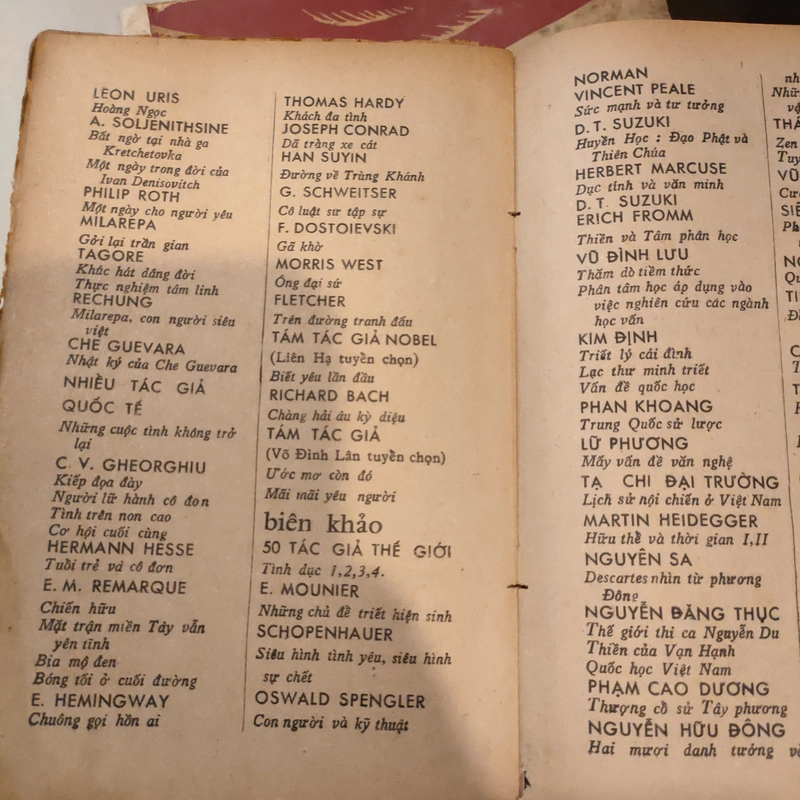 LEON URIS
Hoàng Ngọc
A. SOLJENITHSINE
Bất ngờ tại nhà ga
Kretchetovka
Một ngày trong đời của
Ivan Denisovitch
PHILIP ROTH
Một ngày cho người yêu
MILAREPA
Gởi lại trần gian
TAGORE
Khúc hát dâng đời
Thực nghiệm tâm linh
RECHUNG
Milarepa, con người siêu
việt
CHE GUEVARA
Nhật ký của Che Guevara
NHIỀU TÁC GIẢ
QUỐC TẾ
Những cuộc tình không trở
lại
C. V. GHEORGHIU
Kiếp đọa đày
Người lữ hành cô đơn
Tình trên non cao
Cơ hội cuối cùng
HERMANN HESSE
Tuổi trẻ và cô đơn
E. M. REMARQUE
Chiến hữu
Mặt trận miền Tây vẫn
yên tĩnh
Bia mộ đen
Bóng tối ở cuối đường
E. HEMINGWAY
Chuông gọi hồn ai
THOMAS HARDY
Khách đa tình
JOSEPH CONRAD
Dã tràng xe cát
HAN SUYIN
Đường về Trùng Khánh
G. SCHWEITSER
Cô luật sư tập sự
F. DOSTOIEVSKI
Gã khờ
MORRIS WEST
Ông đại sứ
FLETCHER
Trên đường tranh đấu
TÁM TÁC GIẢ NOBEL
(Liên Hạ tuyển chọn)
Biết yêu lần đầu
RICHARD BACH
Chàng hải âu kỳ diệu
TÁM TÁC GIẢ
(Võ Đình Lân tuyển chọn)
Ước mơ còn đó
Mãi mãi yêu người
biên khảo
50 TÁC GIẢ THẾ GIỚI
Tình dục 1,2,3,4.
E. MOUNIER
Những chủ đề triết hiện sinh
SCHOPENHAUER
Siêu hình tình yêu, siêu hình
sự chết
OSWALD SPENGLER
Con người và kỹ thuật
NORMAN
VINCENT PEALE
Sức mạnh và tư tưởng
D. T. SUZUKI
Huyền Học : Đạo Phật và
Thiên Chúa
HERBERT MARCUSE
Dục tính và văn minh
D. T. SUZUKI
ERICH FROMM
Thiền và Tâm phân học
VŨ ĐÌNH LƯU
Thăm dò tiềm thức
Phân tâm học áp dụng vào
việc nghiên cứu các ngành
học vấn
KIM ĐỊNH
Triết lý cái đình
Lạc thư minh triết
Vấn đề quốc học
PHAN KHOANG
Trung Quốc sử lược
LỮ PHƯƠNG
Mấy vấn đề văn nghệ
TẠ CHI ĐẠI TRƯỜNG
Lịch sử nội chiến ở Việt Nam
MARTIN HEIDEGGER
Hữu thể và thời gian I,II
NGUYÊN SA
Descartes nhìn từ phương
Đông
NGUYỄN ĐĂNG THỤC
Thế giới thi ca Nguyễn Du
Thiền của Vạn Hạnh
Quốc học Việt Nam
PHẠM CAO DƯƠNG
Thượng cổ sử Tây phương
NGUYỄN HỮU ĐÔNG
Hai mươi danh tướng
Zen